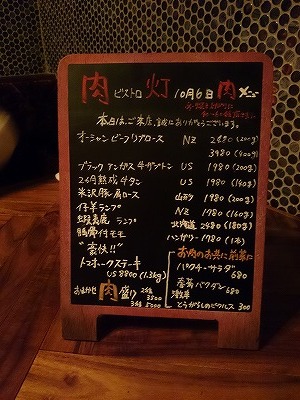 肉 ビストロ 灯 10月6日 肉 メニュー
本日は、ご来店、誠にありがとうございます。
オーシャンビーフリブロース NZ 2480(200g)
3480(400g)
ブラックアンガス牛ザブトン US 1980(200g)
2ヶ月熟成牛タン US 1980(140g)
米沢豚肩ロース 山形 1980(200g)
仔羊ランプ NZ 1980(160g)
蝦夷鹿 ランプ 北海道 2480(180g)
鴨骨付モモ ハンガリー 1780(1本)
"豪快!!"
トマホークステーキ
US 8800(1.3kg)
おまかせ 肉盛り 2名 3500
3名 5000
お肉のお共に前菜に
パクチーサラダ 680
香菊バクダン 680
激辛
とうがらしのピクルス 300